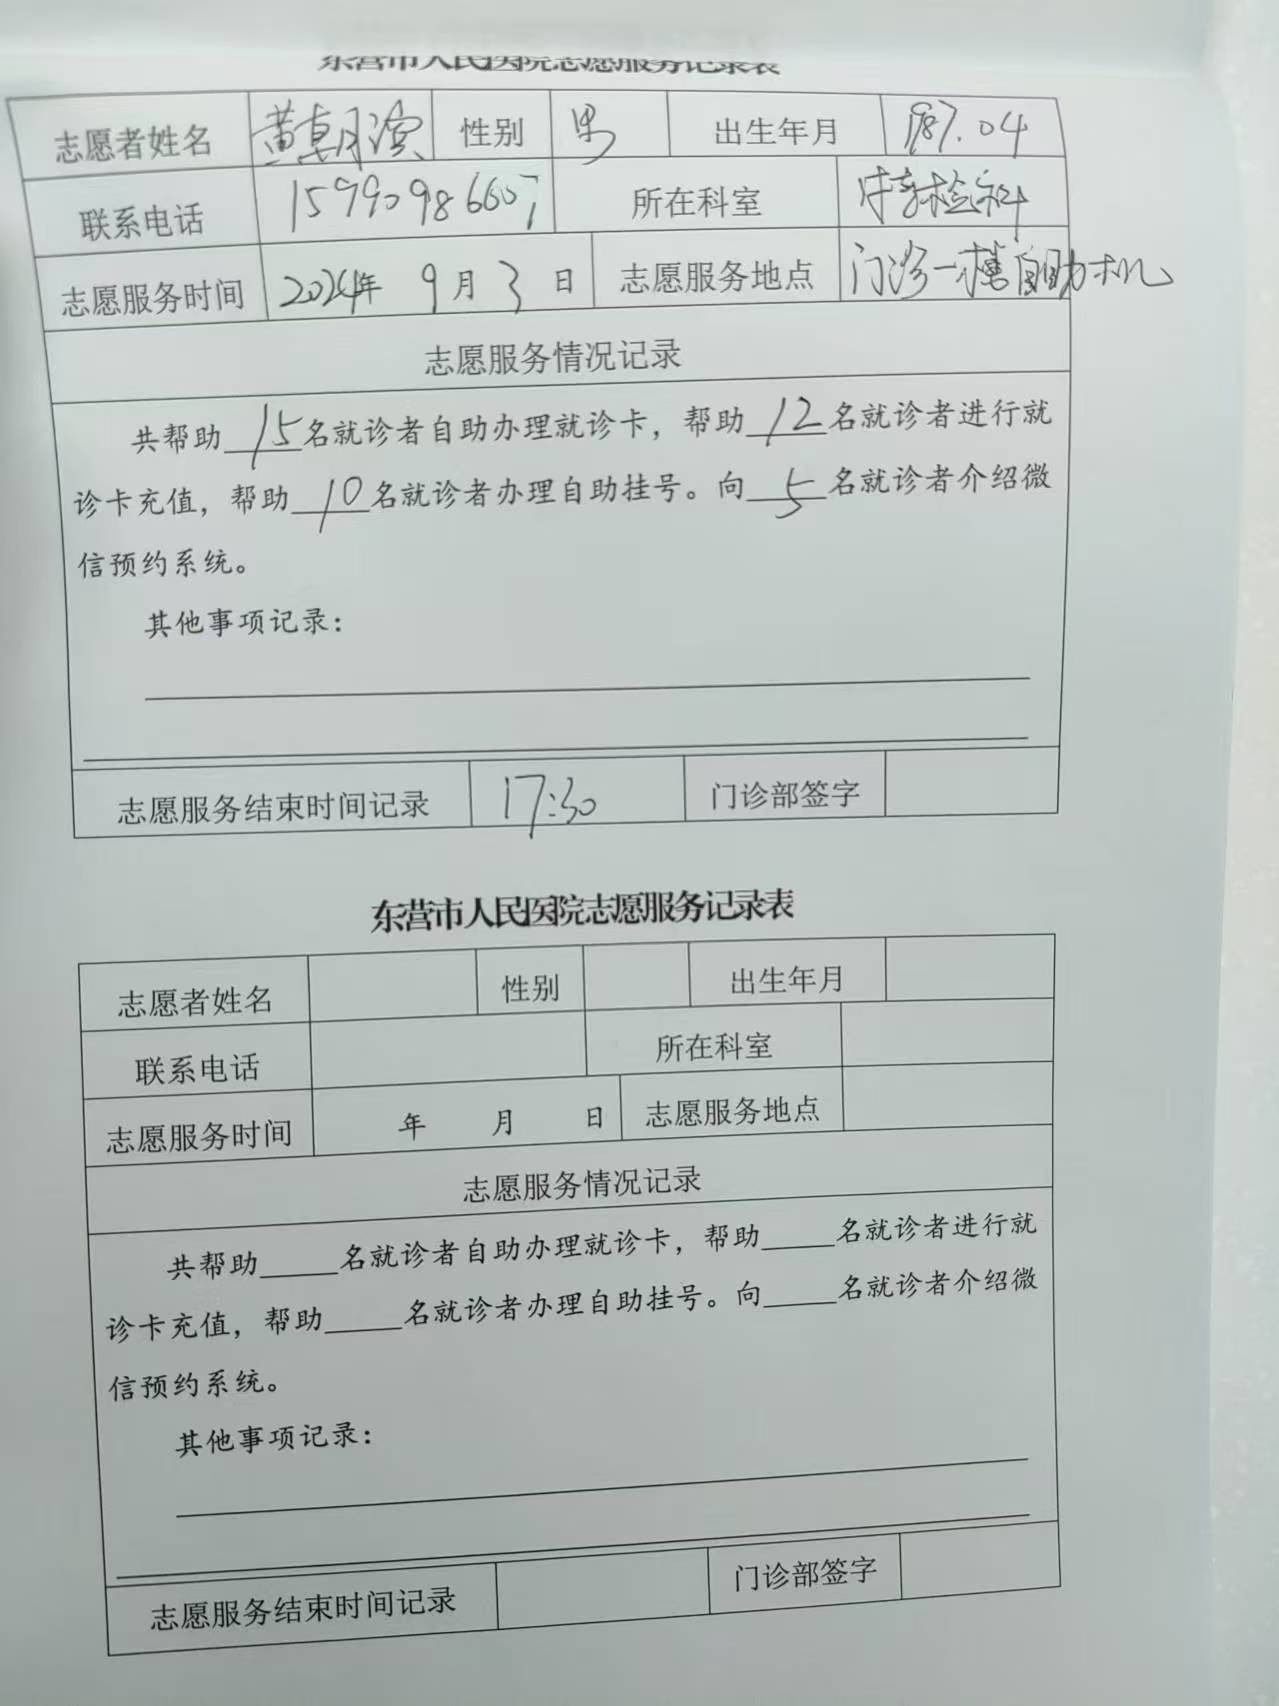 东营市人民医院志愿服务记录表
志愿者姓名 黄朝演 性别 男 出生年月 1987.04
联系电话 15990986607 所在科室 体检科
志愿服务时间 2024年 9月 3日 志愿服务地点 门诊一楼自助机
志愿服务情况记录
共帮助15名就诊者自助办理就诊卡，帮助12名就诊者进行就
诊卡充值，帮助10名就诊者办理自助挂号。向5名就诊者介绍微
信预约系统。
其他事项记录：
志愿服务结束时间记录 17:30 门诊部签字
东营市人民医院志愿服务记录表
志愿者姓名 性别 出生年月
联系电话 所在科室
志愿服务时间 年 月 日 志愿服务地点
志愿服务情况记录
共帮助_____名就诊者自助办理就诊卡，帮助_____名就诊者进行就
诊卡充值，帮助_____名就诊者办理自助挂号。向_____名就诊者介绍微
信预约系统。
其他事项记录：
志愿服务结束时间记录 门诊部签字